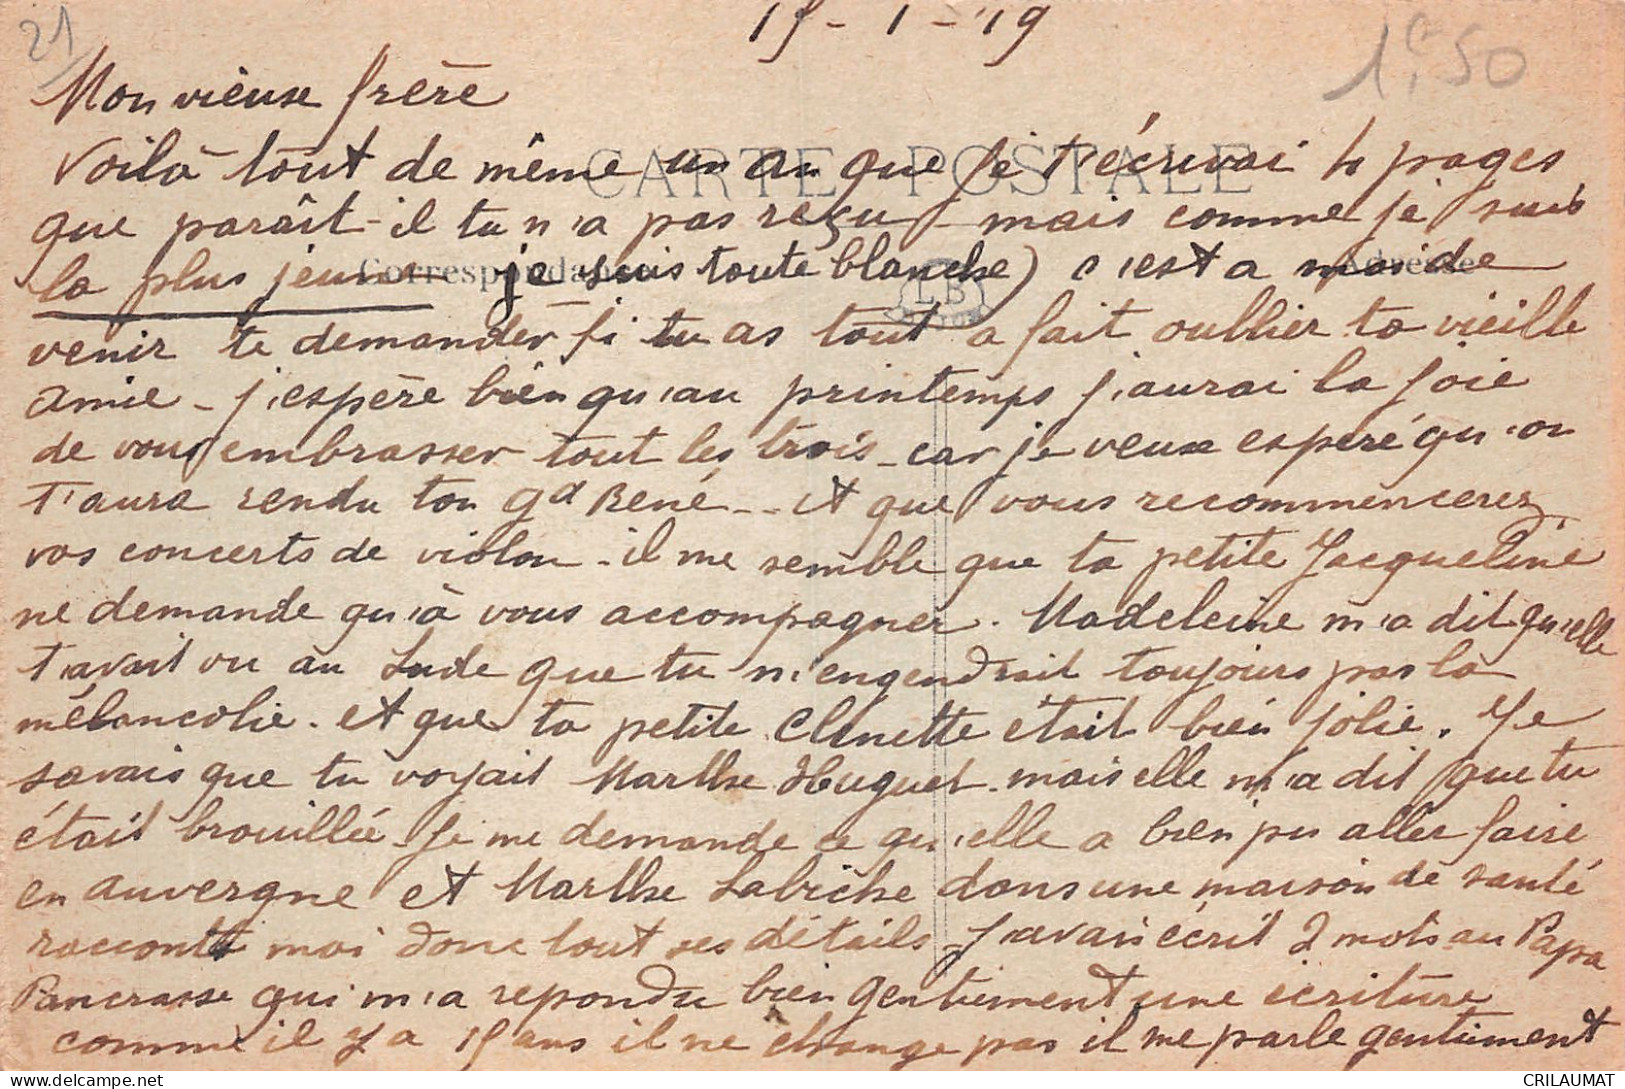 21
15-1-19
1f,50
Mon vieuse frère
CARTE POSTALE
Voilà tout de même un an que je t'écrivai 4 pages
que paraît-il tu n'a pas reçu - mais comme je suis
Correspondance
Adresse
LB
la plus jeune je suis toute blanche) c'est a moi de
venir te demander si tu as tout a fait oublier ta vieille
amie - j'espère bien qu'au printemps j'aurai la joie
de vous embrasser tout les trois - car je veux esperé qu'on
t'aura rendu ton gd René -- et que vous recommencerez
vos concerts de violon - il me semble que ta petite Jacqueline
ne demande qu'à vous accompagner. Madeleine m'a dit qu'elle
t'avait vu au Lude que tu n'engendrait toujours pas la
mélancolie. et que ta petite Clinette était bien jolie. Je
savais que tu voyait Marthe Huguet - mais elle m'a dit que tu
était brouillée. Je me demande ce qu'elle a bien pu aller faire
en auvergne et Marthe Labiche dans une maison de santé
raconte moi donc tout ses détails - J'avais écrit 2 mots au Papa
Pancrasse qui m'a repondu bien gentiment une écriture
comme il y a 15 ans il ne change pas il me parle gentiment
CRILAUMAT